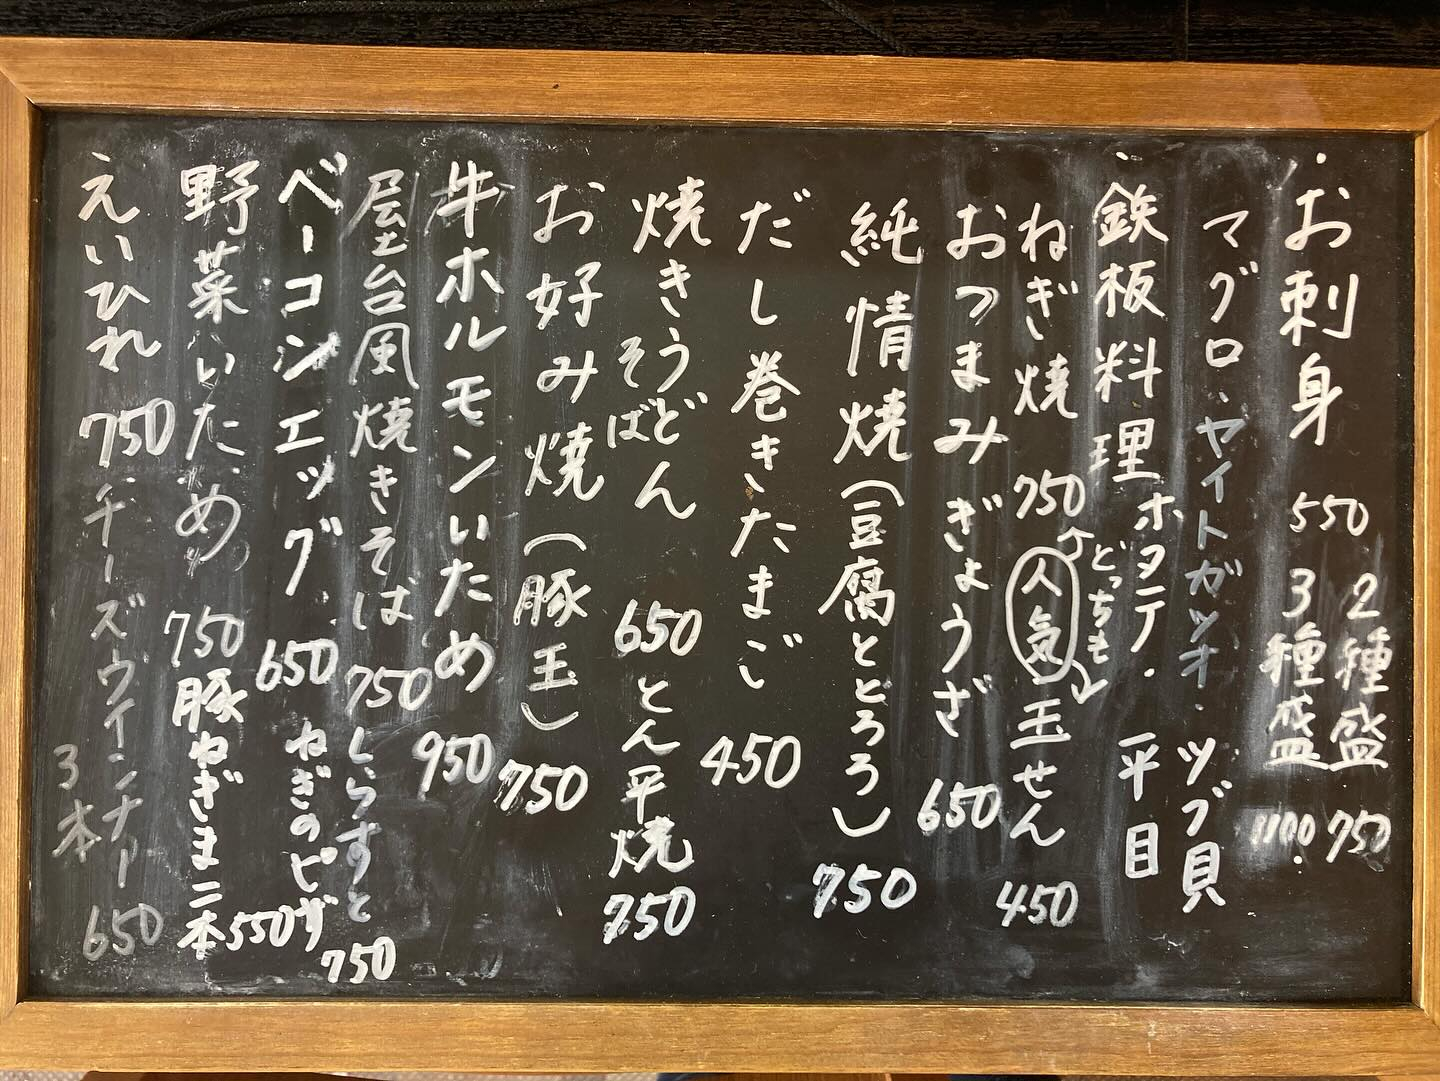 ・お刺身 550 2種盛 750
3種盛 1100.
マグロ・ヤイトガツオ・ツブ貝
ホタテ・平目
・鉄板料理
ねぎ焼 750 人気 玉せん 450
どっちも
おつまみぎょうざ 650
純情焼(豆腐ととろろ) 750
だし巻きたまご 450
焼きうどん
そば 650 とん平焼 750
お好み焼(豚玉) 750
牛ホルモンいため 950
屋台風焼きそば 750 しらすと
ねぎのピザ 750
ベーコンエッグ 650
野菜いため 750 豚ねぎま二本 550
えいひれ 750 チーズウインナー
3本 650